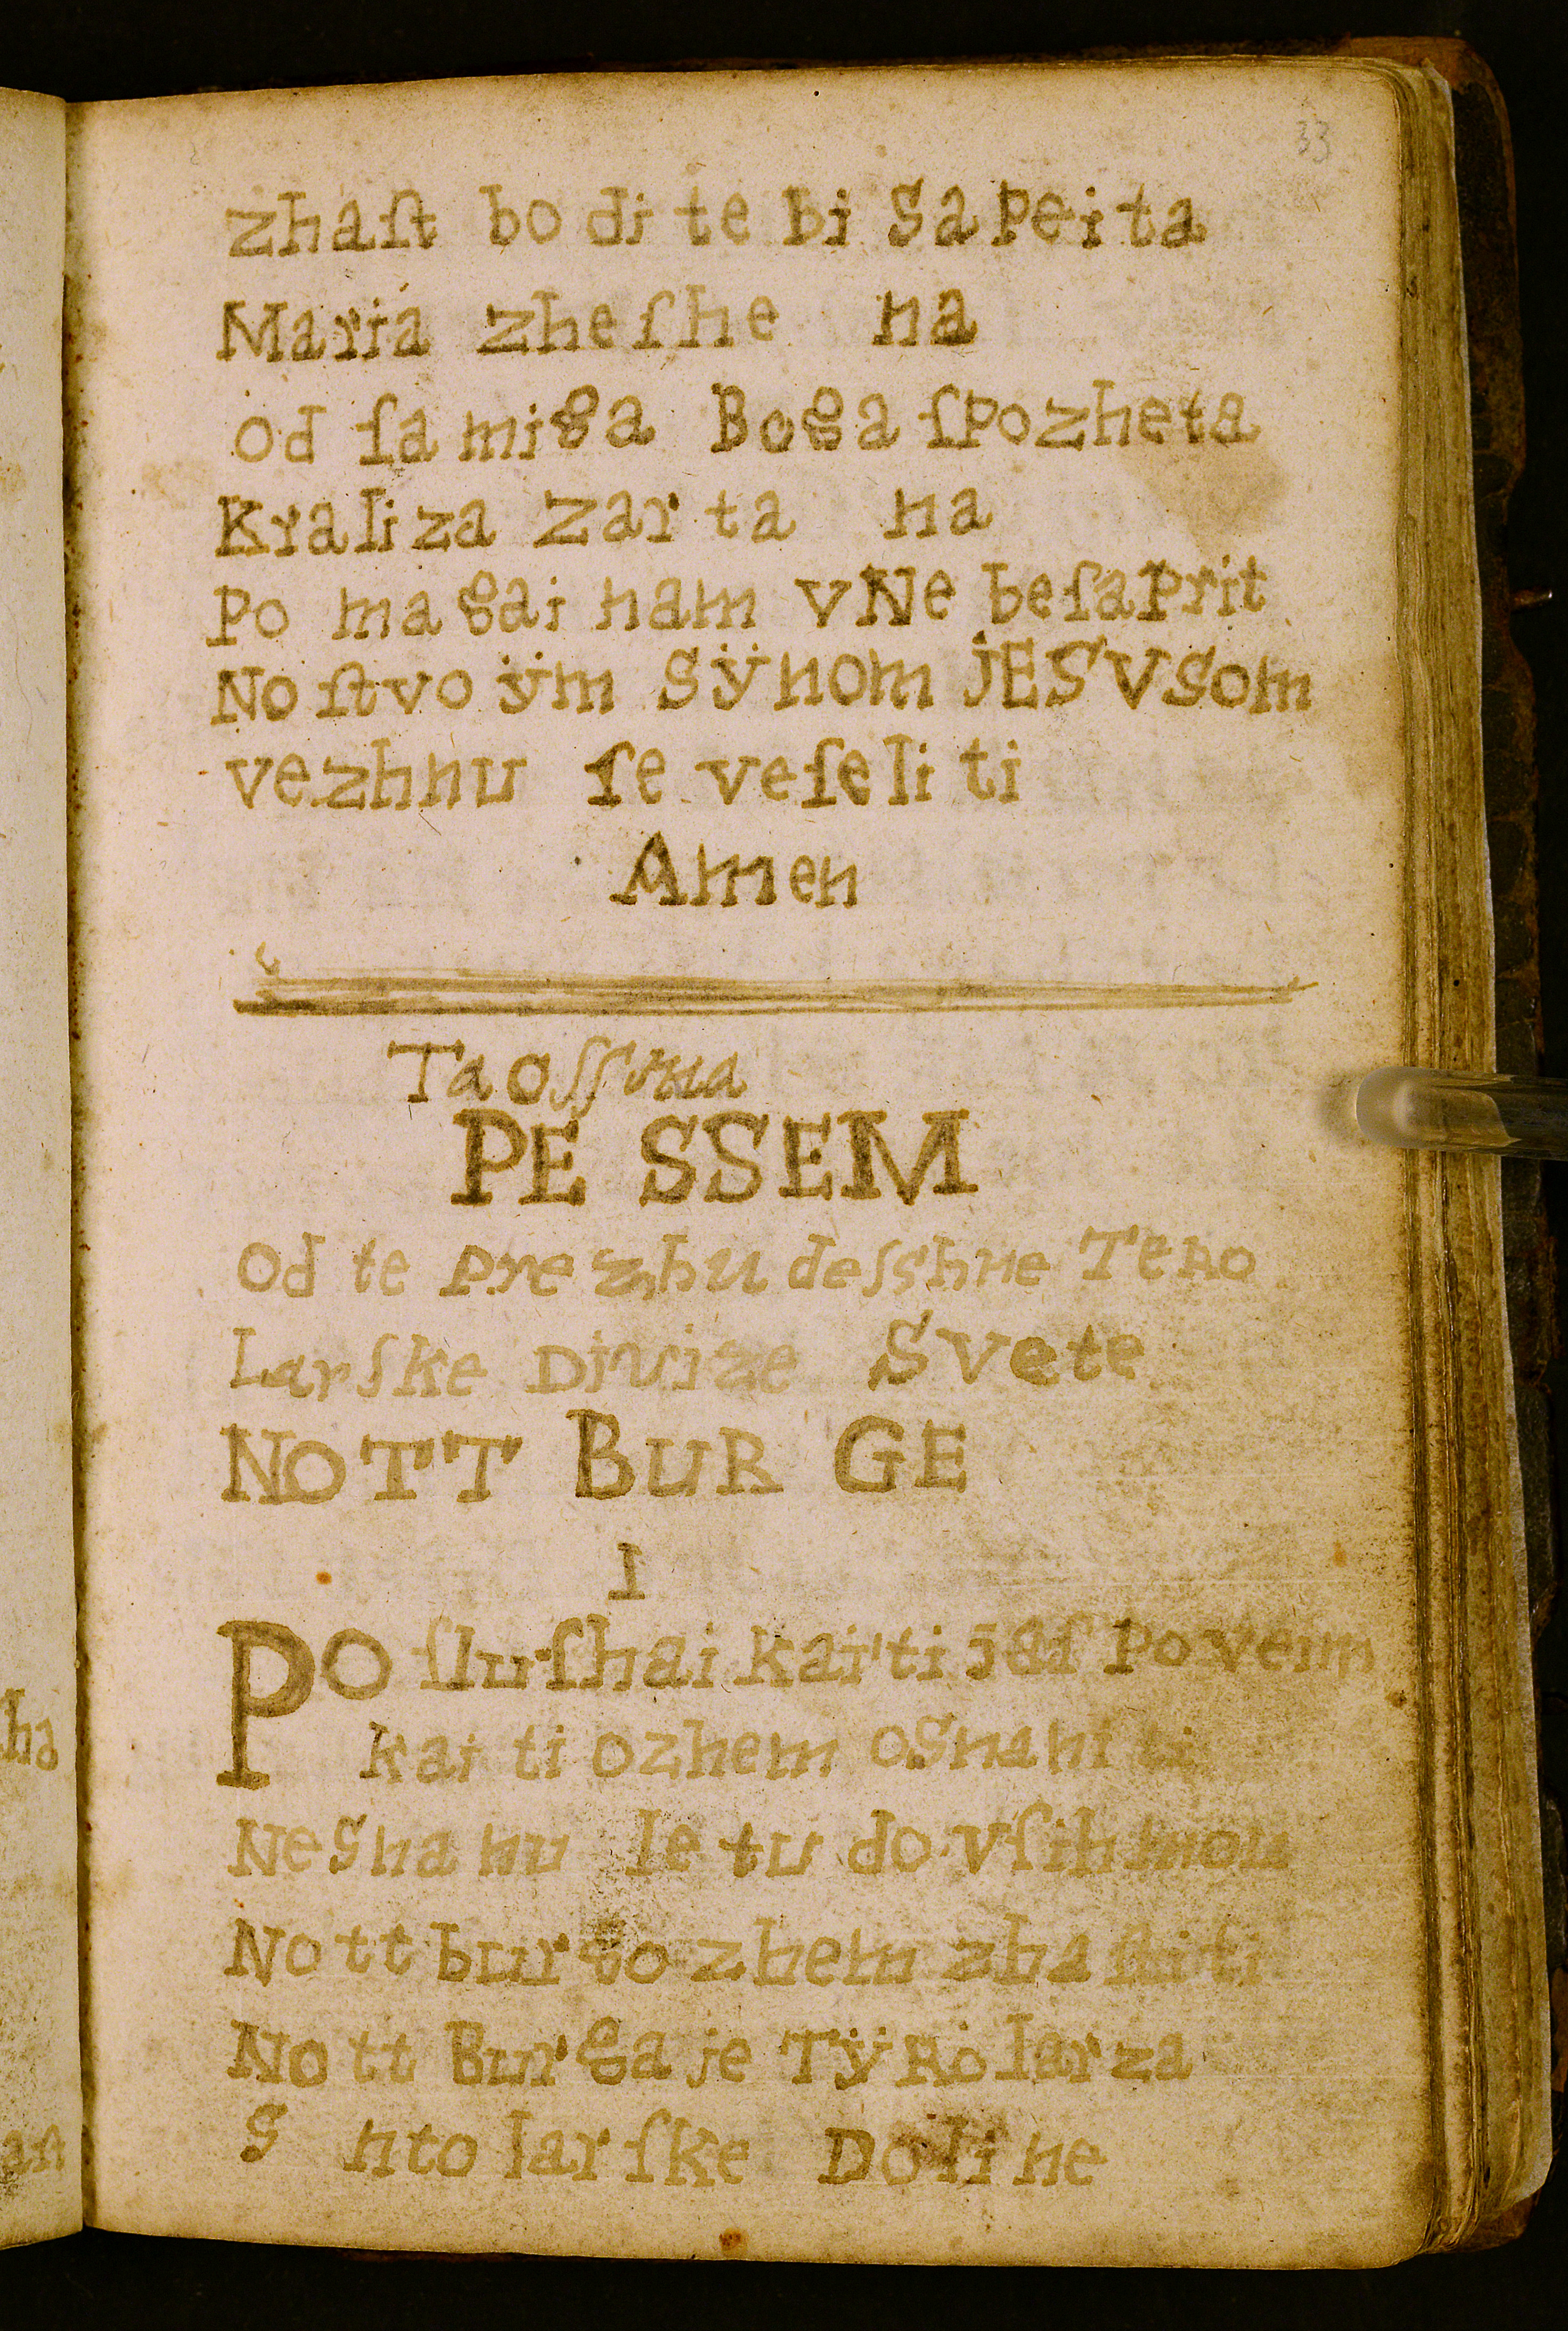 33
zhaſt bo di te bi Sa Pei ta
Maria zhe ſhe na
od ſa miga Boga ſPozheta
Kraliza zar ta na
Po ma gai nam VNe beſa Prit
No ſtvo ÿm SÿNom jESVSom
vezhnu ſe veſeli ti
Amen
Ta oſſma
PE SSEM
Od te Pre zhu deſſhne TeRo
Larſke Divize Svete
NOTT BUR GE
1
Po ſluſhai kai ti jeſt Poveim
kai ti ozhem oSnani ti
NeSna nu le tu do vſih mou
Nott burgo zhem zhaſti ti
Nott Burga je TÿRolar za
S nto lar ſke Doli ne